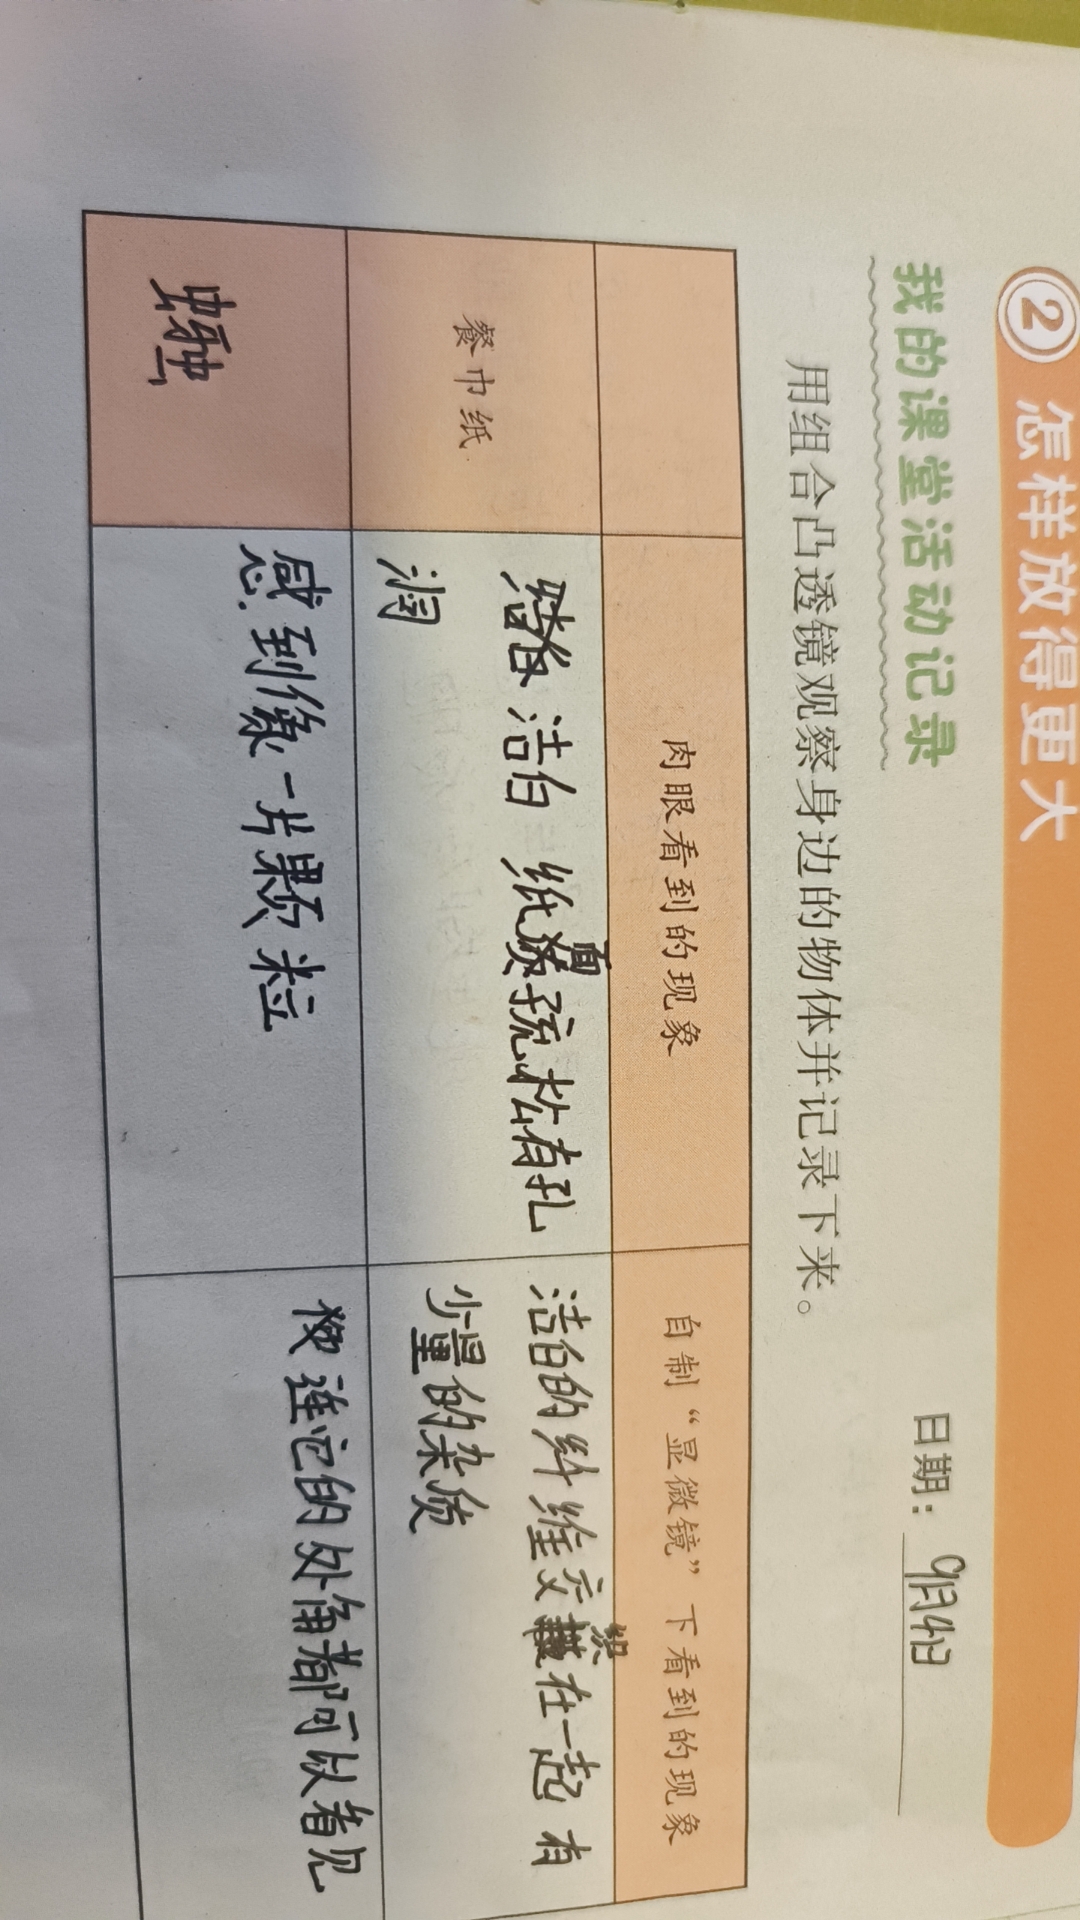 ② 怎样放得更大
我的课堂活动记录
日期：9月4日
用组合凸透镜观察身边的物体并记录下来。
肉眼看到的现象
自制“显微镜”下看到的现象
餐巾纸
洁白 纸面疏松有孔
洞
洁白的纤维交织在一起 有
少量的杂质
感到像一片颗粒
连它的外角都可以看见